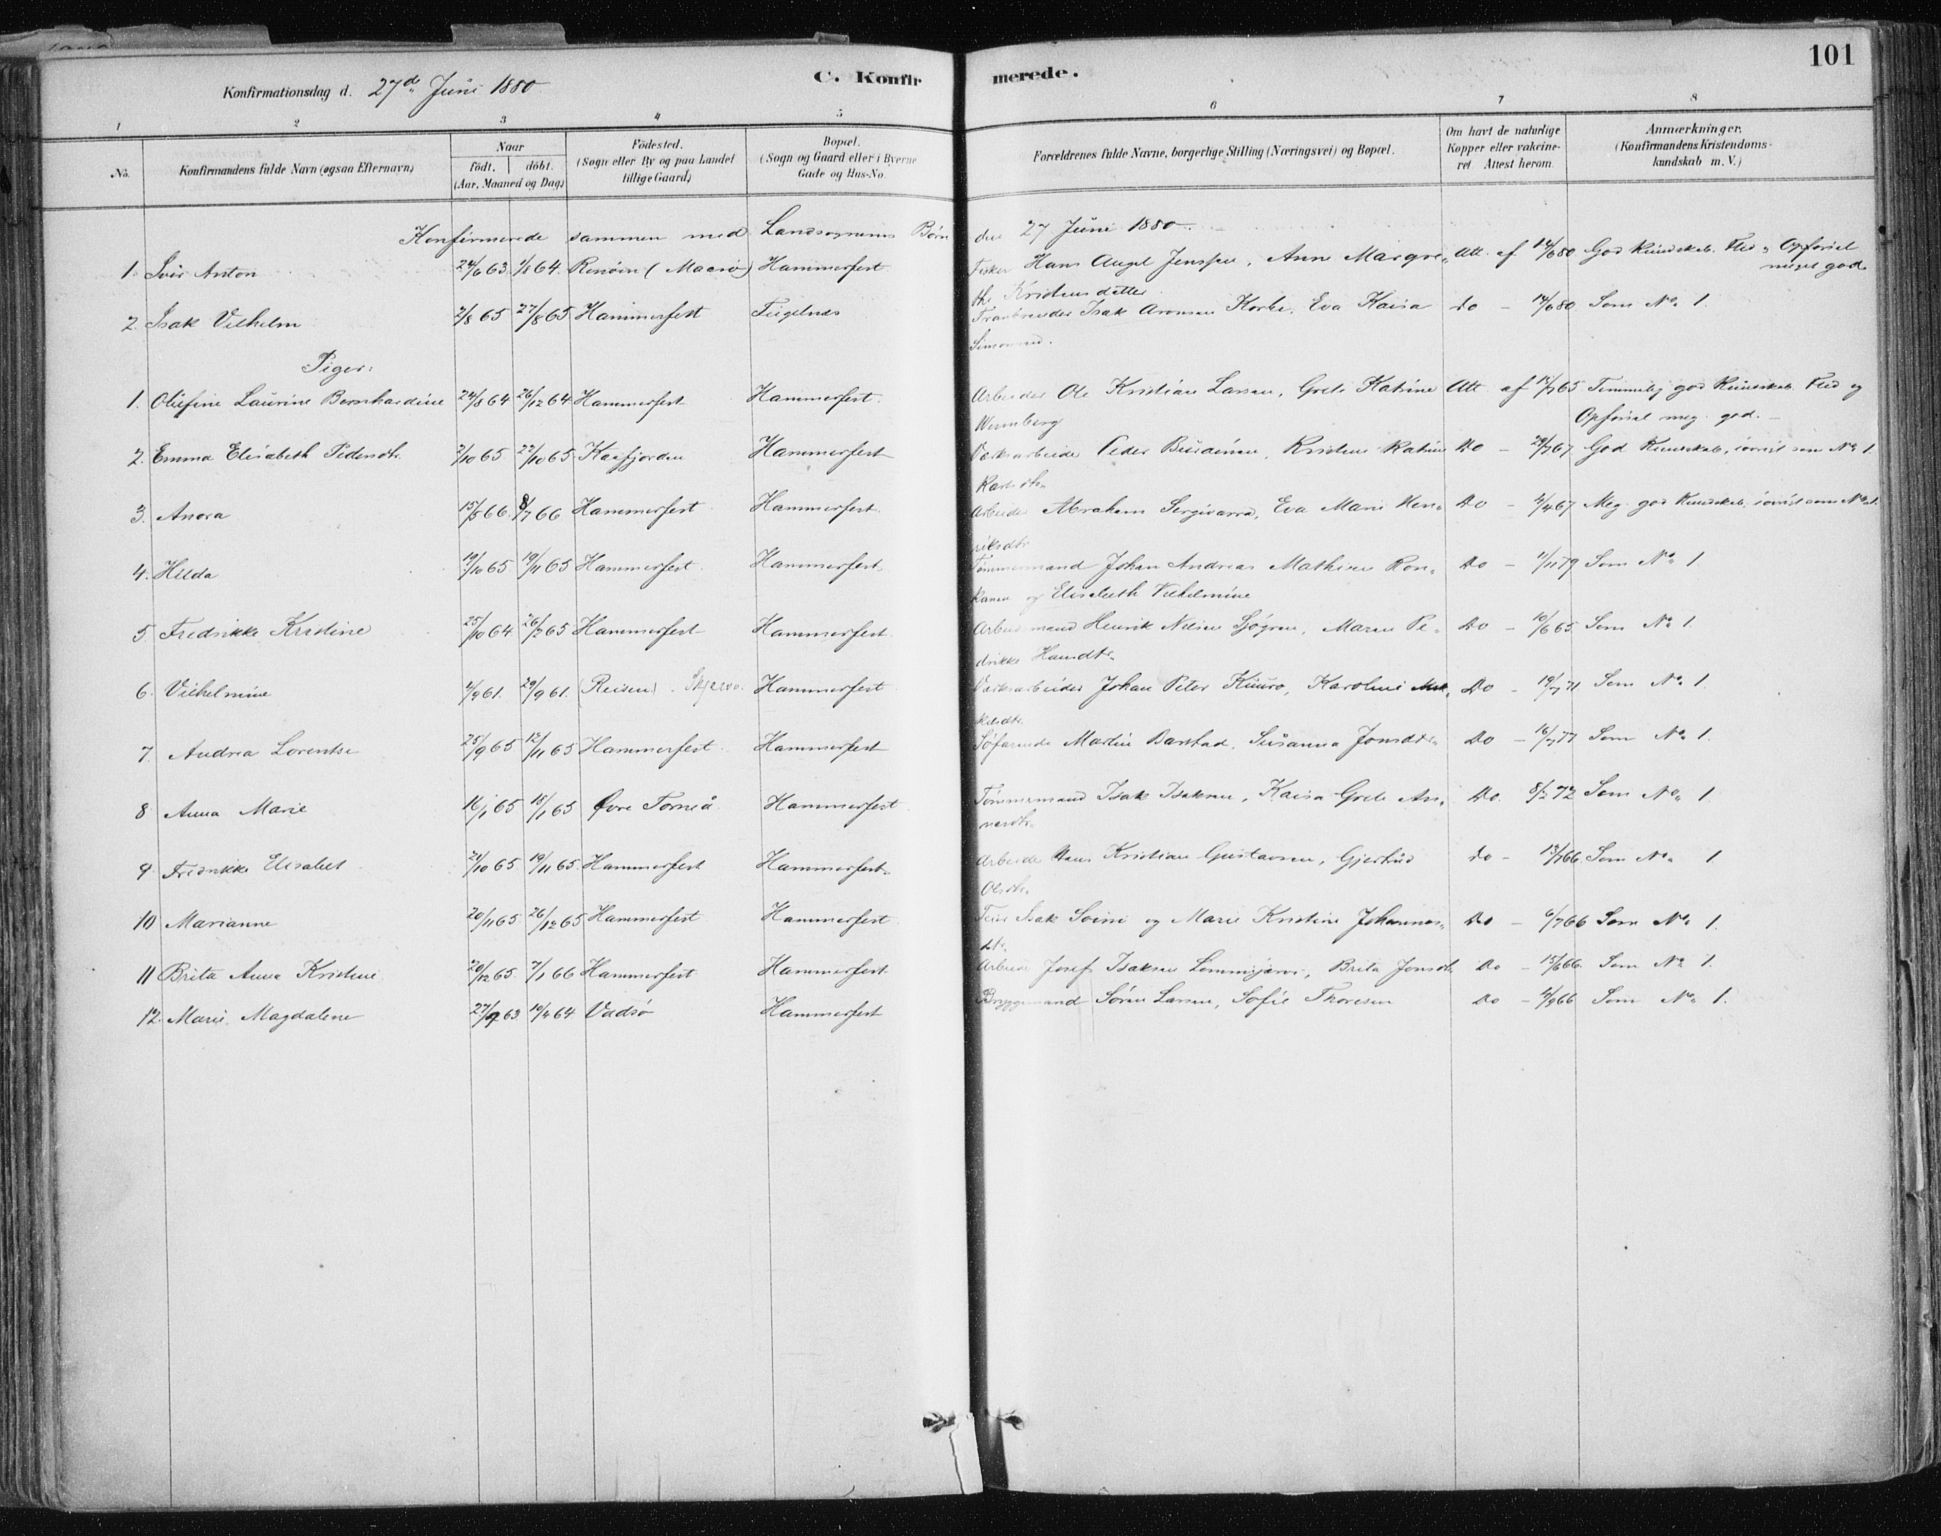 101
C. Konfirmerede.
Konfirmationsdag d. 27de Juni 1880
1 2 3 4 5 6 7 8
No. Konfirmandens fulde Navn (ogsaa Efternavn)
Naar født. døbt. (Aar, Maaned og Dag)
Fødested. (Sogn eller By og paa Landet tillige Gaard)
Bopæl. (Sogn og Gaard eller i Byerne Gade og Hus-No.
Forældrenes fulde Navne, borgerlige Stilling (Næringsvei) og Bopæl.
Om havt de naturlige Kopper eller vakcineret Attest herom.
Anmærkninger. (Konfirmandens Kristendomskundskab m. V.)
Konfirmerede sammen med Landsognens Børn den 27 Juni 1880.
1. Anton 24/6 63 1/8 64 Renøen (Maasø) Hammerfest Fisker Hans Angel Jenssen, Anne Margre- Att. af 14/6 80 God Kundskab. Flid og Opførsel
the Kristensdatter meget god
2. Isak Vilhelm 2/8 65 27/8 65 Hammerfest Fuglenæs Tranbrænder Isak Aronsen Korke, Eva Kaisa Do - 14/6 80 Som No 1.
Simonsd.
Piger:
1. Olufine Laurine Bernhardine 24/8 64 26/12 64 Hammerfest Hammerfest. Arbeider Ole Kristian Larsen, Grete Katrine Att. af 14/7 65 Temmelig god Kundskab. Flid og
Wennberg Opførsel meg. god.
2. Emma Elisabeth Pedersdtr. 2/10 65 22/10 65 Kaafjorden Hammerfest Værksarbeider Peder Katrine Do - 29/7 67 God Kundskab, iøvrigt som No 1.
Karlsdtr.
3. Anora 15/5 66 8/7 66 Hammerfest Hammerfest. Arbeider Abraham Sergivarra, Eva Marie Hen- Do - 4/4 67 Meg. god Kundskab, iøvrigt som No 1.
riksdtr
4. Hilda 19/10 65 19/11 65 Hammerfest Hammerfest. Tømmermand Johan Andreas Mathisen Ron- Do - 11/11 79 Som No 1
kanen og Elisabeth Vilhelmine
5 Fredrikke Kristine 25/10 64 26/2 65 Hammerfest Hammerfest. Arbeidsmand Henrik Nilsen Sjøgren, Maren Pe- Do - 10/6 65 Som No 1.
drikke Hansdtr.
6. Vilhelmine 2/9 61. 29/9 61. (Reisen) Skjervø Hammerfest Værksarbeider Johan Peter Kuuro, Karoline Mik- Do - 19/7 71 Som No 1.
kelsdtr.
7. Andrea Lorentse 25/9 65 12/11 65 Hammerfest Hammerfest Søfarende Martin Barstad, Susanna Jonsdtr. Do - 16/7 77 Som No 1.
8 Anna Marie 16/1 65 18/1 65 Øvre Torneå Hammerfest Tømmermand Isak Isaksen, Kaisa Grete An- Do. 8/2 72 Som No. 1.
9 Fredrikke Elisabet 21/10 65 19/11 65 Hammerfest Hammerfest. Arbeider Hans Kristian Gustavsen, Gjertrud Do - 13/7 66 Som No. 1
Olsdtr.
10 Marianne 20/11 65 26/12 65 Hammerfest Hammerfest Isak Soini og Marie Kristine Johannes- Do - 6/7 66 Som No. 1.
dtr.
11 Brita Anna Kristine 20/12 65. 7/1 66 Hammerfest Hammerfest Arbeider Josef Isaksen Lommijärvi, Brita Jonsdtr. Do - 15/6 66. Som No 1.
12. Marie Magdalene 27/9 63 10/4 64 Vadsø Hammerfest Bryggemand Søren Larsen, Sofie Thoresen Do - 4/9 66 Som No. 1.